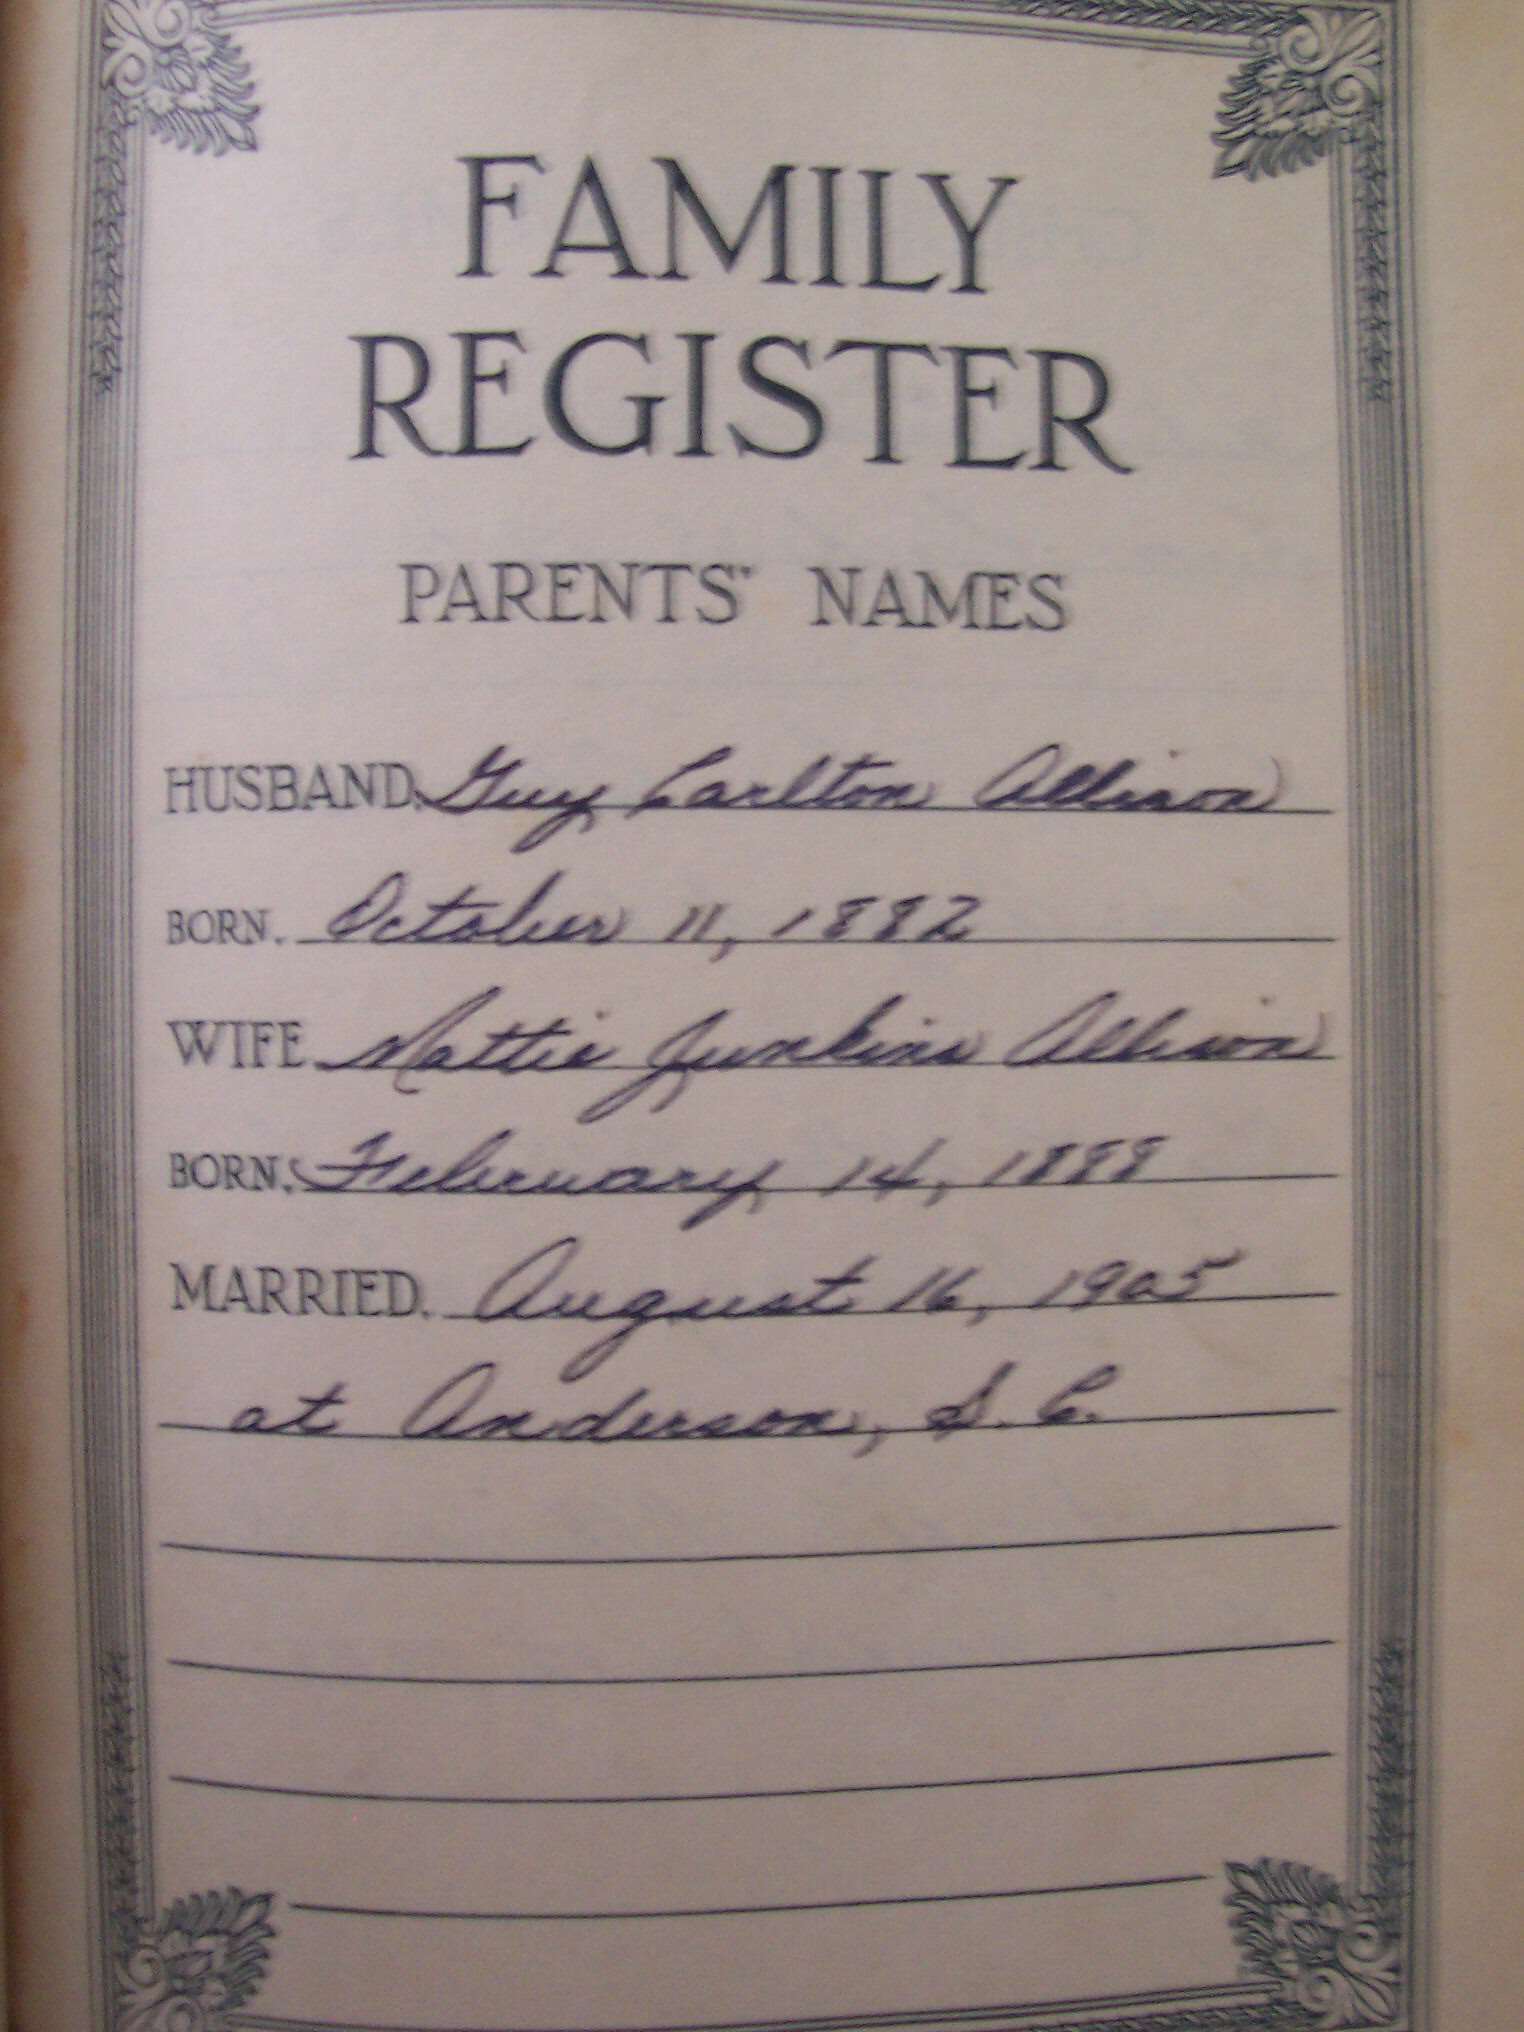 FAMILY
REGISTER
PARENTS' NAMES
HUSBAND. Guy Carlton Allison
BORN. October 11, 1882
WIFE Mattie Junkins Allison
BORN. February 14, 1888
MARRIED. August 16, 1905
at Anderson, S. C.